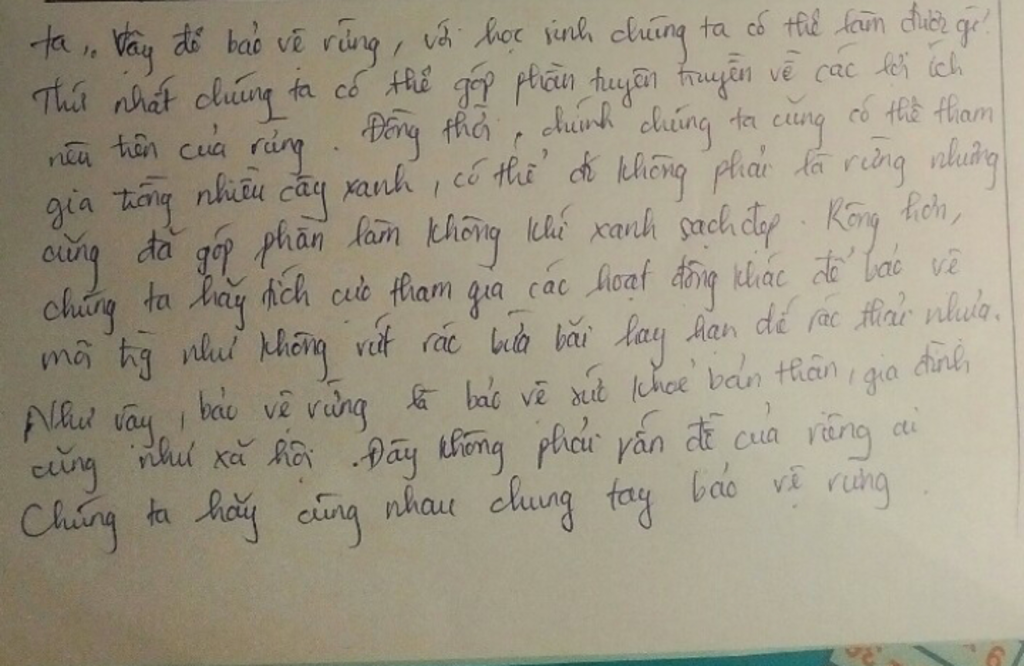 ta,. Vậy để bảo vệ rừng, với học sinh chúng ta có thể làm được gì?
Thứ nhất chúng ta có thể góp phần tuyên truyền về các lợi ích
nêu trên của rừng. Đồng thời, chính chúng ta cũng có thể tham
gia trồng nhiều cây xanh, có thể đó không phải là rừng nhưng
cũng đã góp phần làm không khí xanh sạch đẹp. Rộng hơn,
chúng ta hãy tích cực tham gia các hoạt động khác để bảo vệ
môi tr̀g như không vứt rác bừa bãi hay hạn chế rác thải nhựa.
Như vậy, bảo vệ rừng là bảo vệ sức khoẻ bản thân, gia đình
cũng như xã hội. Đây không phải vấn đề của riêng ai
Chúng ta hãy cùng nhau chung tay bảo vệ rừng.